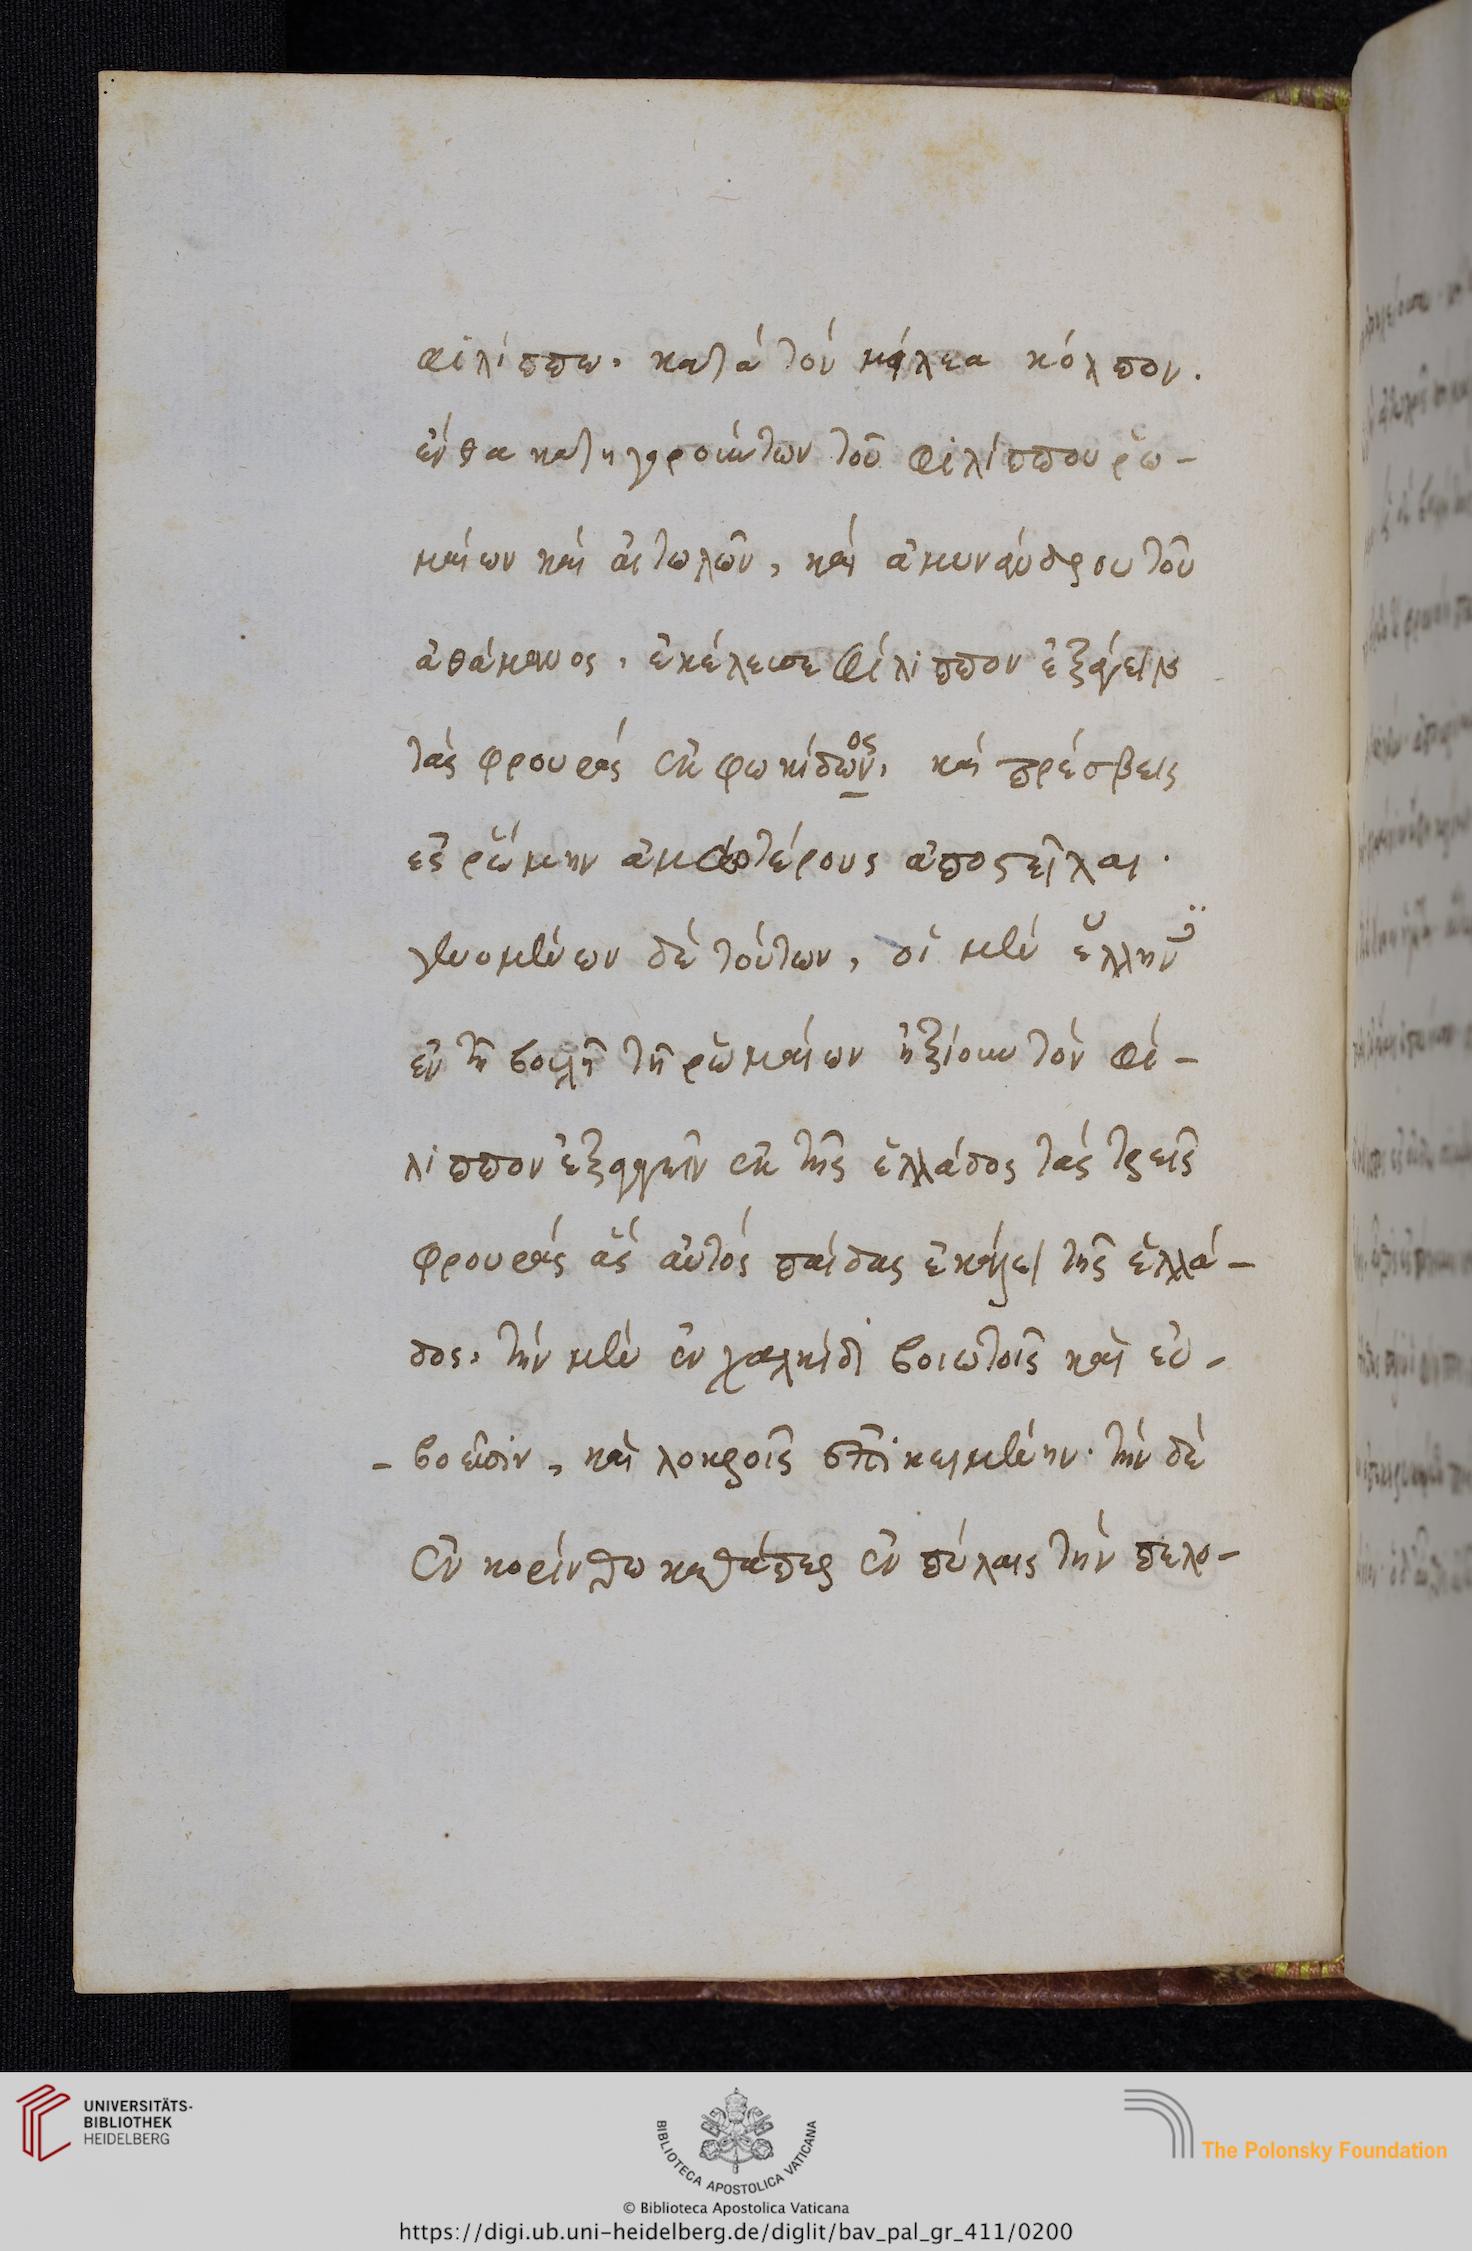 φιλίππω. κατὰ τὸν μάλεα κόλπον.
ἔνθα κατηγορούντων τοῦ φιλίππου ῥω-
μαίων καὶ αἰτωλῶν, καὶ ἀμυνάνδρου τοῦ
ἀθαμᾶνος, ἐκέλευσε φίλιππον ἐξάγειν
τὰς φρουρὰς ἐκ φωκίδων, ος καὶ πρέσβεις
ἐς ῥώμην ἀμφοτέρους ἀποστεῖλαι.
γενομένων δὲ τούτων, οἱ μὲν ἕλληνες
ἐν τῇ βουλῇ τῇ ῥωμαίων ἠξίουν τὸν φί-
λιππον ἐξαγαγεῖν ἐκ τῆς ἑλλάδος τὰς τρεῖς
φρουρὰς ἃς αὐτὸς πέδας ἐκάλει τῆς ἑλλά-
δος, τὴν μὲν ἐν χαλκίδι βοιωτοῖς καὶ εὐ-
-βοεῦσιν, καὶ λοκροῖς ἐπικειμένην. τὴν δὲ
ἐν κορίνθω καθάπερ ἐν πύλαις τὴν πελο-
UNIVERSITÄTS-
BIBLIOTHEK
HEIDELBERG
BIBLIOTECA APOSTOLICA VATICANA
The Polonsky Foundation
© Biblioteca Apostolica Vaticana
https://digi.ub.uni-heidelberg.de/diglit/bav_pal_gr_411/0200